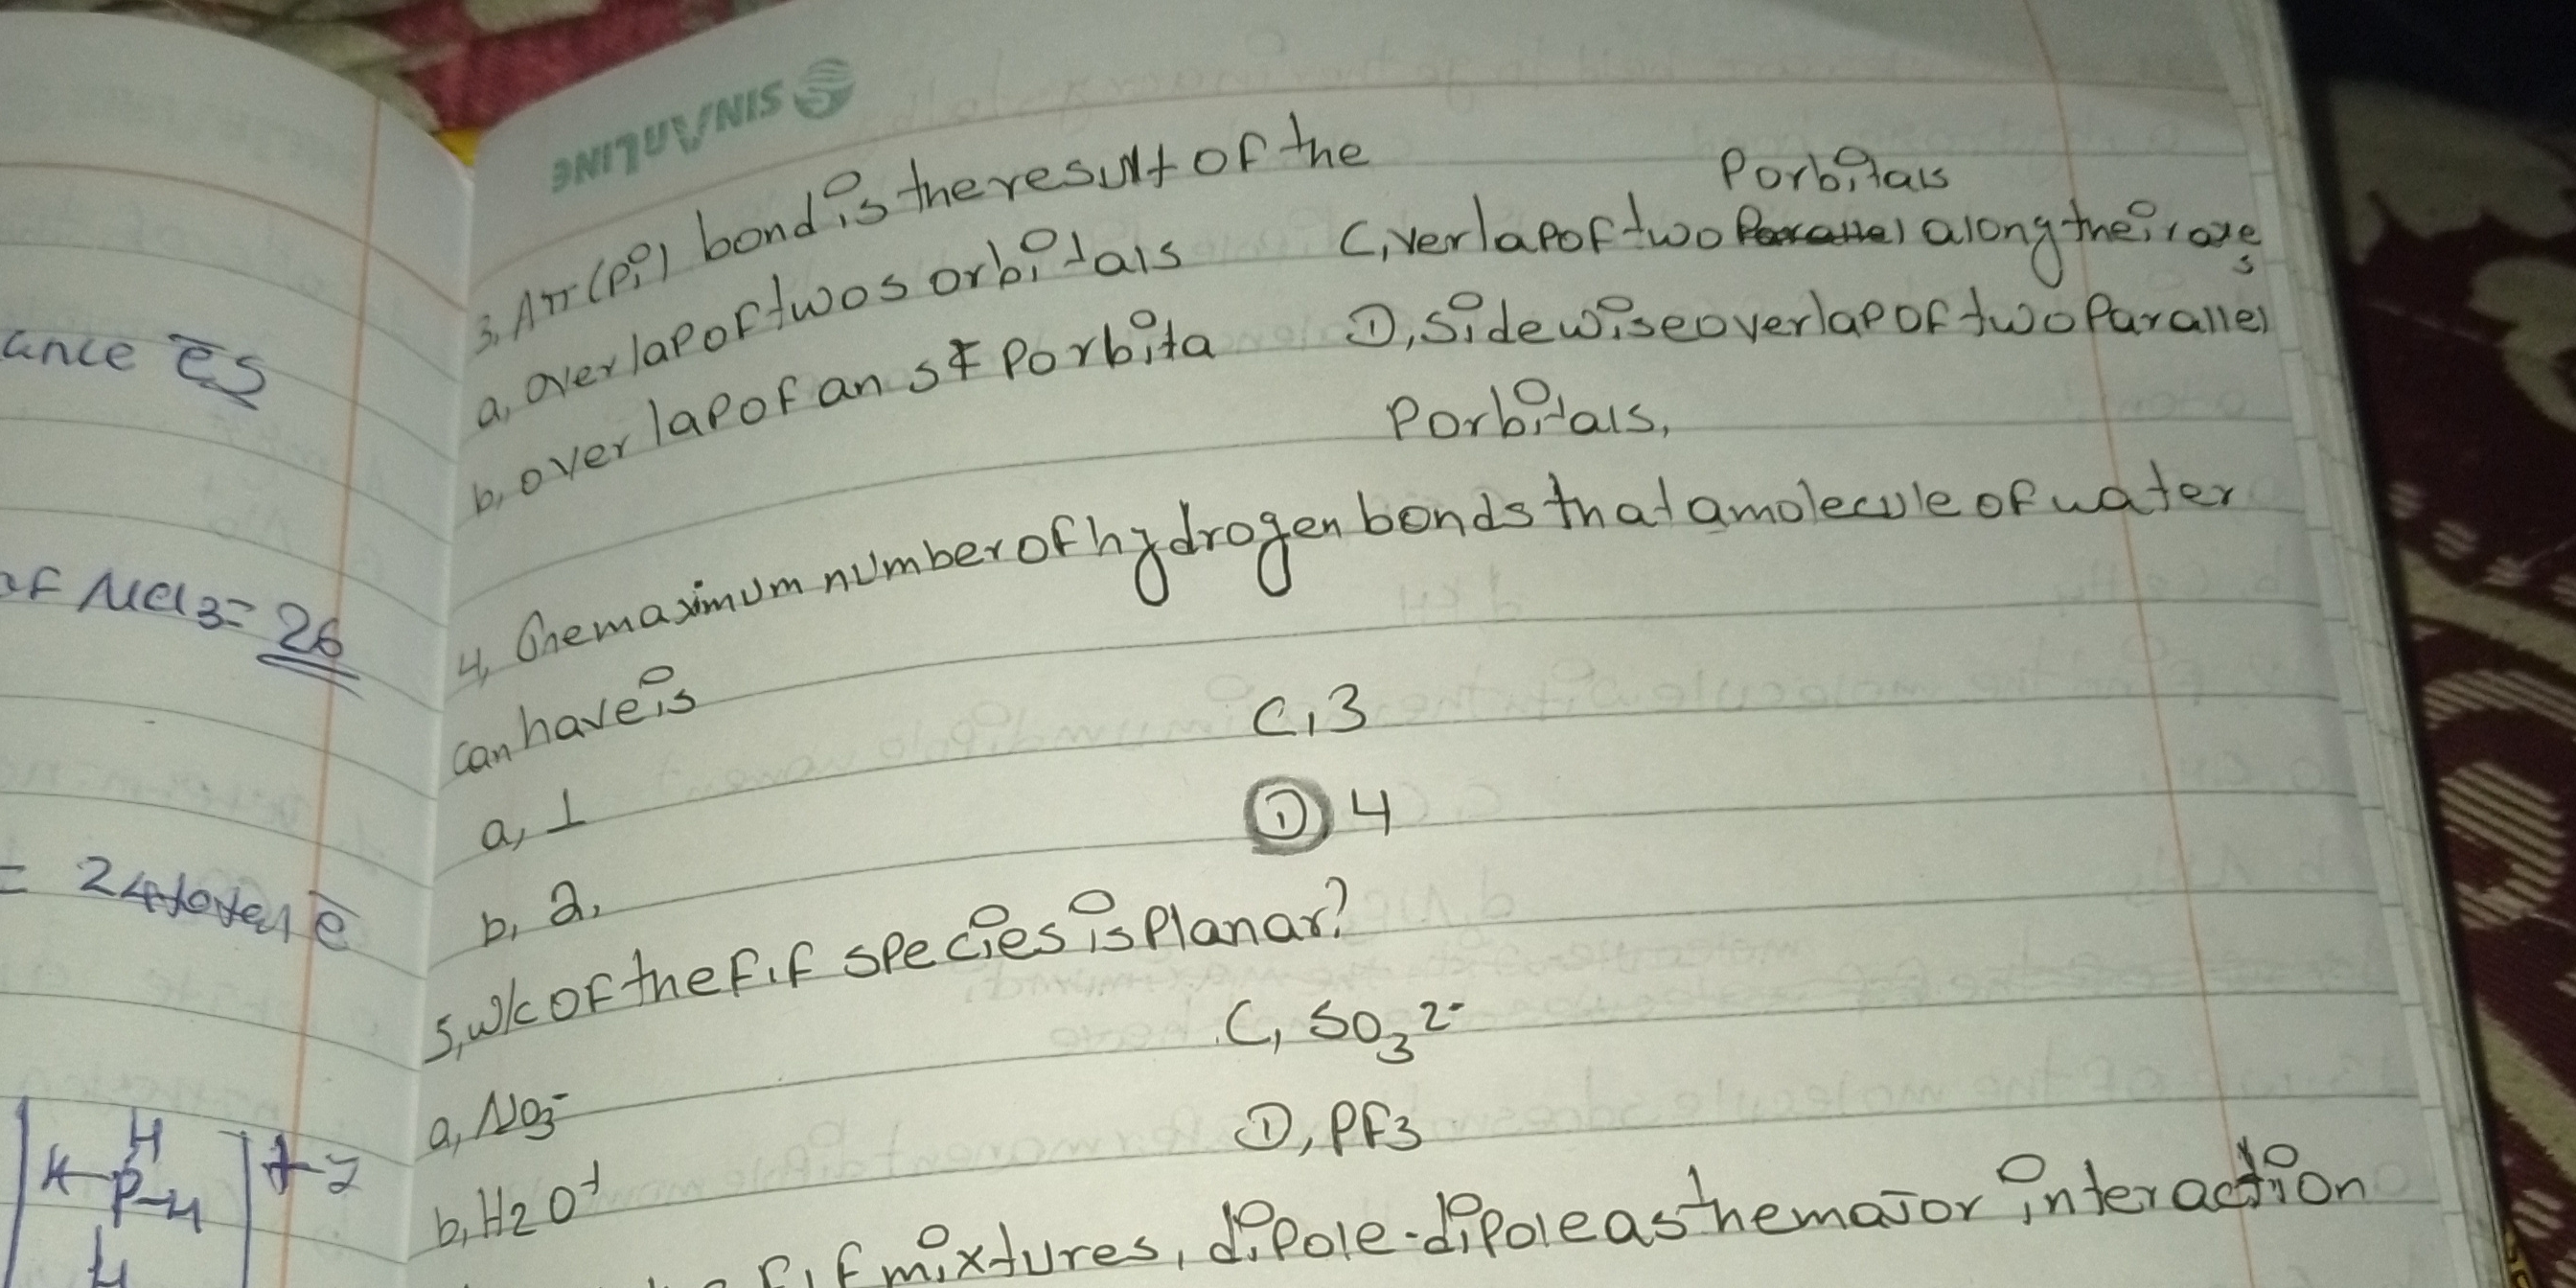 SINARLINE
3, A π (pi) bond is the result of the
a, overlap of two s orbitals
b, over lap of an s & P orbita
P orbitals
C, verlap of two Parallel along their axe
s
D, sidewise overlap of two Parallel
P orbitals,
4, The maximum number of hydrogen bonds that a molecule of water
can have is
a, 1
b, 2,
C, 3
D 4
5, w/c of the F.f species is Planar?
a, NO3-
b, H2O+
C, SO3 2-
D, PF3
F.f mixtures, dipole-dipole as the major interaction
ance es
of NCl3 = 26
= 24 e
H
H-P-H
H